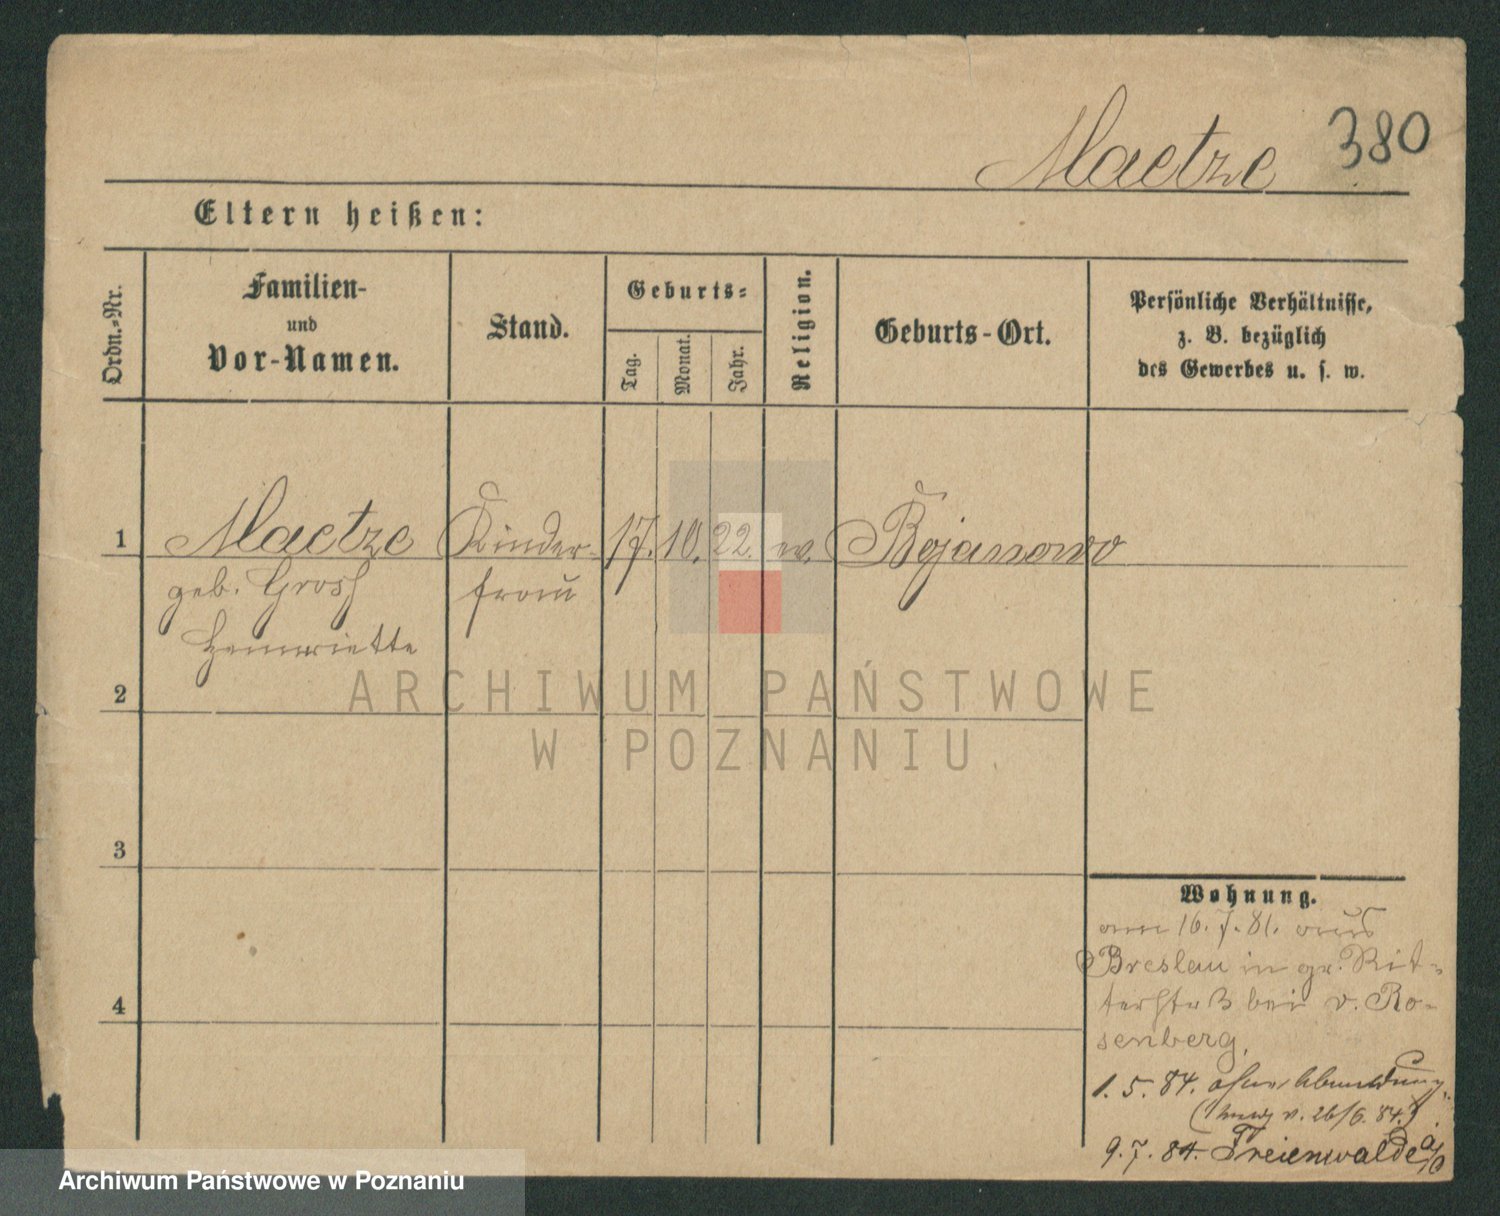 Maetze 380
Eltern heißen:
Ordn.-Nr.
Familien-
und
Vor-Namen.
Stand.
Geburts-
Tag.
Monat.
Jahr.
Religion.
Geburts-Ort.
Persönliche Verhältnisse,
z. B. bezüglich
des Gewerbes u. s. w.
1 Maetze Kinder- 17. 10. 22. ev. Bojanowo
geb. Grosh frau
Hennriette
2
ARCHIWUM PAŃSTWOWE
W POZNANIU
3
Wohnung.
am 16. 7. 81. aus
Breslau in gr. Rit-
terstraß bei v. Ro-
senberg.
4
1. 5. 84. ohne Abmeldung
v. 26/6. 84.)
9. 7. 84. Freienwalde a/O
Archiwum Państwowe w Poznaniu